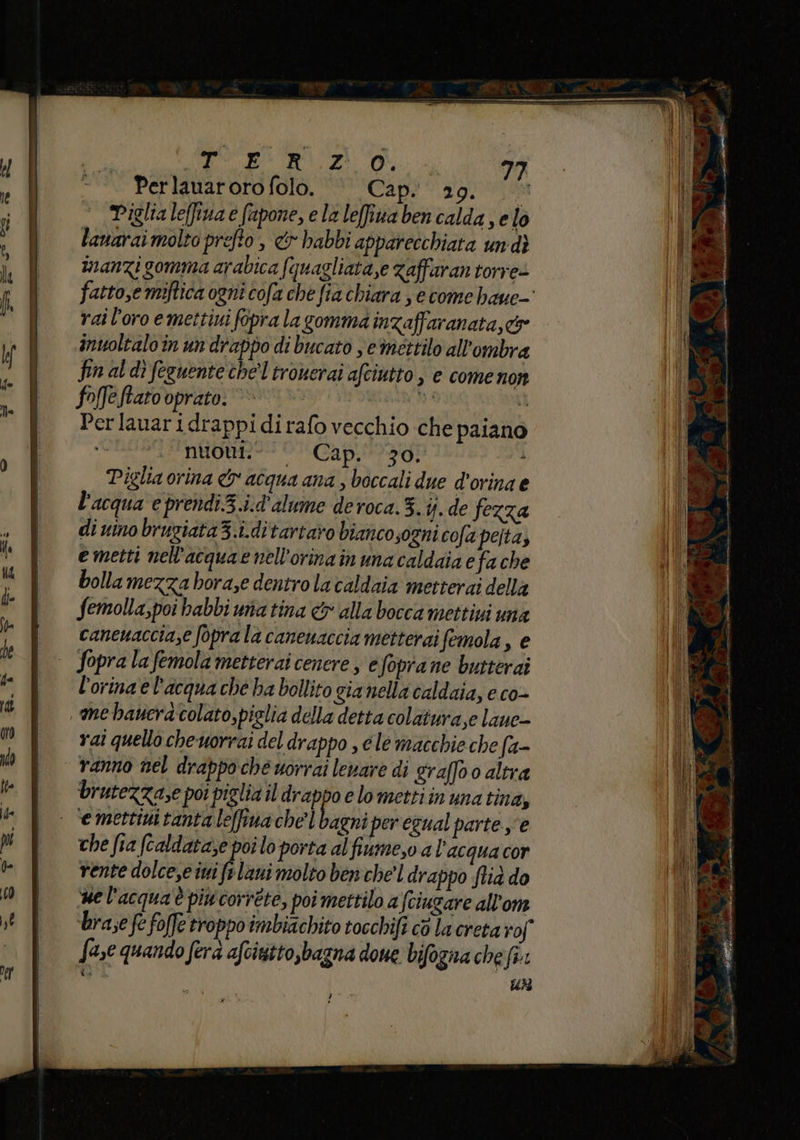 T E R Z O. 77
Per lauar oro solo. Cap. 29.
Piglia lessiua e sapone, e la lessiua ben calda, e lo
lauarai molto presto, & habbi apparecchiata un dì
inanzi gomma arabica squagliata,e zaffaran torre-
fatto,e mistica ogni cosa che sia chiara, e come haue-
rai l'oro e mettiui sopra la gomma inzaffaranata,&
inuoltalo in un drappo di bucato, e mettilo all'ombra
fin al dì seguente che'l trouerai asciutto, e come non
fosse stato oprato.
Per lauar i drappi di raso vecchio che paiano
nuoui. Cap. 30.
Piglia orina & acqua ana, boccali due d'orina e
l'acqua e prendi ℥.i.d'alume de roca.℥.ij.de fezza
di uino brugiata ℥.i.di tartaro bianco,ogni cosa pesta,
e metti nell'acqua e nell'orina in una caldaia e fa che
bolla mezza hora,e dentro la caldaia metterai della
semolla,poi habbi una tina & alla bocca mettiui una
caneuaccia,e sopra la caneuaccia metterai semola, e
sopra la semola metterai cenere, e sopra ne butterai
l'orina e l'acqua che ha bollito gia nella caldaia, e co-
me hauerà colato,piglia della detta colatura,e laue-
rai quello che uorrai del drappo, e le macchie che sa-
ranno nel drappo che uorrai leuare di grasso o altra
brutezza,e poi piglia il drappo e lo metti in una tina,
e mettiui tanta lessiua che'l bagni per egual parte, e
che sia scaldata,e poi lo porta al fiume,o a l'acqua cor
rente dolce,e iui si laui molto ben che'l drappo stia do
ue l'acqua è piu corrēte, poi mettilo a sciugare all'om
bra,e se fosse troppo imbiāchito tocchisi cō la creta ros
sa,e quando serà asciutto,bagna doue bisogna che sia
un